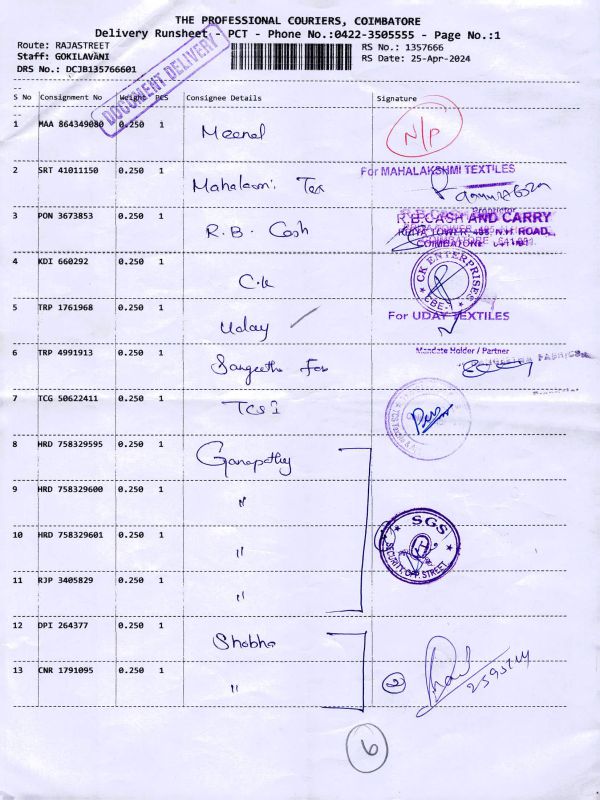 THE PROFESSIONAL COURIERS, COIMBATORE
Delivery Runsheet - PCT - Phone No.:0422-3505555 - Page No.:1
Route: RAJASTREET
RS No.: 1357666
Staff: GOKILAVANI
RS Date: 25-Apr-2024
DRS No.: DCJB135766601
DOCUMENT DELIVERY
S No Consignment No Weight PCS Consignee Details Signature
1 MAA 864349080 0.250 1 Meenal N/P
2 SRT 41011150 0.250 1 Mahalaxmi Tex For MAHALAKSHMI TEXTILES
Proprietor
3 PON 3673853 0.250 1 R.B. Cash R.B.CASH AND CARRY
4 KDI 660292 0.250 1 C.K CK ENTERPRISES CBE-1
5 TRP 1761968 0.250 1 Uday For UDAY TEXTILES
Mandate Holder / Partner
6 TRP 4991913 0.250 1 Sangeetha Fab
7 TCG 50622411 0.250 1
8 HRD 758329595 0.250 1 Ganapathy
9 HRD 758329600 0.250 1 "
10 HRD 758329601 0.250 1 " SGS
11 RJP 3405829 0.250 1 "
12 DPI 264377 0.250 1 Shobha
13 CNR 1791095 0.250 1 " 2
6